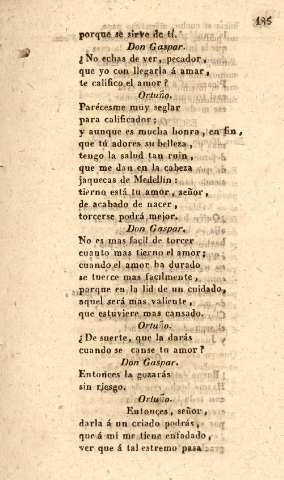 195
porque se sirve de tí.
Don Gaspar.
¿No echas de ver, pecador,
que yo con llegarla á amar,
te califico el amor?
Ortuño.
Parécesme muy seglar
para calificador;
y aunque es mucha honra, en fin,
que tú adores su belleza,
tengo la salud tan ruin,
que me dan en la cabeza
jaquecas de Medellin:
tierno está tu amor, señor,
de acabado de nacer,
torcerse podrá mejor.
Don Gaspar.
No es mas facil de torcer
cuanto mas tierno el amor;
cuando el amor ha durado
se tuerce mas facilmente,
porque en la lid de un cuidado,
aquel será mas valiente,
que estuviere mas cansado.
Ortuño.
¿De suerte, que la darás
cuando se canse tu amor?
Don Gaspar.
Entonces la gozarás
sin riesgo.
Ortuño.
Entonces, señor,
darla á un criado podrás,
que á mí me tiene enfadado,
ver que á tal estremo pasa